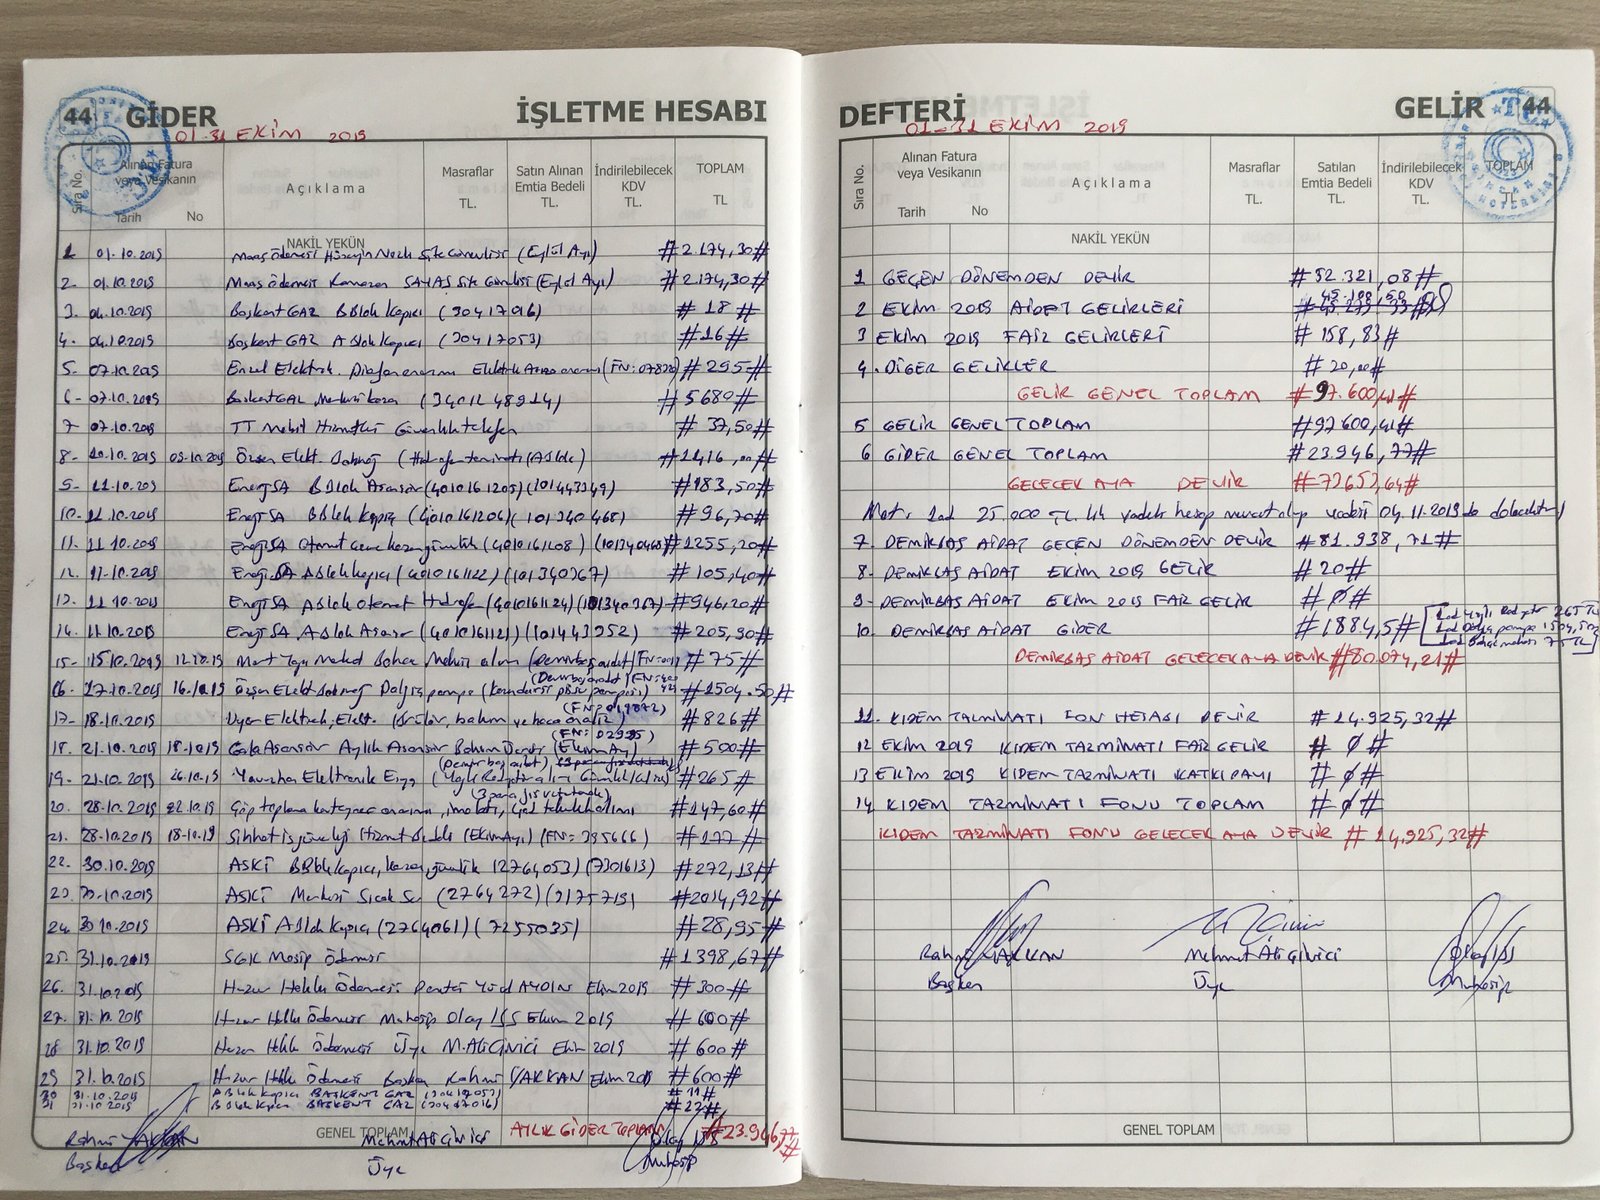 44 GİDER İŞLETME HESABI
01-31 EKİM 2019
Sıra No. Alınan Fatura veya Vesikanın Tarih No Açıklama Masraflar TL. Satın Alınan Emtia Bedeli TL. İndirilebilecek KDV TL. TOPLAM TL
NAKİL YEKÜN
1 01.10.2019 Maaş Ödemesi Hüseyin Site Görevlisi (Eylül Ayı) #2.174,30#
2- 01.10.2019 Maaş Ödemesi Ramazan Site Görevlisi (Eylül Ayı) #2.174,30#
3- 04.10.2019 Başkent GAZ B Blok Kapıcı (30417016) #18#
4- 04.10.2019 Başkent GAZ A Blok Kapıcı (30417053) #16#
5- 07.10.2019 Elektrik #295#
6- 07.10.2019 Başkent GAZ Merkezi Kazan (3401248914) #5680#
7 07.10.2019 TT Mobil Hizmetleri Güvenlik telefon #37,50#
8- 10.10.2019 09.10.2019 Özşen Elekt. (Hidrofor tamiratı (A Blok) #1416,00#
9- 11.10.2019 EnerjiSA B Blok Asansör (4010161205) (101443349) #183,50#
10- 11.10.2019 EnerjiSA B Blok Kapıcı (4010161206) (101340468) #96,70#
11. 11.10.2019 EnerjiSA Otomat kazan güvenlik (4010161208) (101340469) #1255,20#
12. 11.10.2019 EnerjiSA A Blok Kapıcı (4010161122) (101340367) #105,40#
13. 11.10.2019 EnerjiSA A Blok Otomat Hidrofor (4010161124) (101340367) #946,20#
14. 11.10.2019 EnerjiSA A Blok Asansör (4010161121) (101443352) #205,30#
15- 15.10.2019 12.10.19 (Demirbaş aidat) #75#
16. 17.10.2019 16.10.19 Özşen Elekt. Dalgıç pompa #1504.50#
(Demirbaş aidat)
17- 18.10.2019 Uyar Elektrik, Elekt. #826#
18. 21.10.2019 18.10.19 Gala Asansör Aylık Asansör Bakım Ücreti (Ekim Ayı) #500#
19- 21.10.2019 26.10.19 Yavuzhan Elektronik (Demirbaş aidat) #265#
20. 28.10.2019 22.10.19 Çöp toplama konteyner onarımı #147,60#
21. 28.10.2019 18.10.19 Sıhhat iş güvenliği Hizmet Bedeli (Ekim Ayı) (FN: 395666) #177#
22. 30.10.2019 ASKİ B Blok kapıcı, kazan, güvenlik (2764053) (7301613) #272,13#
23. 30.10.2019 ASKİ Merkezi Sıcak Su (2764272) (91757191) #2014,92#
24. 30.10.2019 ASKİ A Blok Kapıcı (2764061) (7255035) #28,95#
25. 31.10.2019 SGK Mosip Ödemesi #1398,67#
26. 31.10.2019 Huzur Hakkı Ödemesi AYDIN Ekim 2019 #300#
27. 31.10.2019 Huzur Hakkı Ödemesi Muhasip Olay İŞS Ekim 2019 #600#
28 31.10.2019 Huzur Hakkı Ödemesi Üye M.Ali Çivici Ekim 2019 #600#
29 31.10.2019 Huzur Hakkı Ödemesi Başkan Rahmi YAKKAN Ekim 2019 #600#
30 31.10.2019 A Blok Kapıcı BAŞKENT GAZ (30417053) #11#
31 31.10.2019 B Blok Kapıcı BAŞKENT GAZ (30417016) #22#
GENEL TOPLAM AYLIK GİDER TOPLAMI #23.946,77#
Rahmi YAKKAN Mehmet Ali Çivici Olay İŞS
Başkan Üye Muhasip
DEFTERİ GELİR 44
01-31 EKİM 2019
Sıra No. Alınan Fatura veya Vesikanın Tarih No Açıklama Masraflar TL. Satılan Emtia Bedeli TL. İndirilebilecek KDV TL. TOPLAM TL
NAKİL YEKÜN
1 GEÇEN DÖNEMDEN DEVİR #52.321,08#
2 EKİM 2019 AİDAT GELİRLERİ 45.100,50
3 EKİM 2019 FAİZ GELİRLERİ #158,83#
4. DİĞER GELİRLER #20,00#
GELİR GENEL TOPLAM #97.600,41#
5 GELİR GENEL TOPLAM #97600,41#
6 GİDER GENEL TOPLAM #23.946,77#
GELECEK AYA DEVİR #73653,64#
Not: 1 ad 25.000 TL. lik vadeli hesap mevcut olup vadesi 04.11.2019 da dolacaktır)
7. DEMİRBAŞ AİDAT GEÇEN DÖNEMDEN DEVİR #81.938,71#
8- DEMİRBAŞ AİDAT EKİM 2019 GELİR #20#
9- DEMİRBAŞ AİDAT EKİM 2019 FAİZ GELİR #0#
10. DEMİRBAŞ AİDAT GİDER #1884,5# [1 ad Yağlı Radyatör 265 TL
1 ad Dalgıç pompa 1504,50
75 TL]
DEMİRBAŞ AİDAT GELECEK AYA DEVİR #80.074,21#
11. KIDEM TAZMİNATI FON HESABI DEVİR #14.925,32#
12 EKİM 2019 KIDEM TAZMİNATI FAİZ GELİR #0#
13 EKİM 2019 KIDEM TAZMİNATI KATKI PAYI #0#
14 KIDEM TAZMİNATI FONU TOPLAM #0#
KIDEM TAZMİNATI FONU GELECEK AYA DEVİR #14.925,32#
Rahmi YAKKAN Mehmet Ali Çivici Olay İŞS
Başkan Üye Muhasip
GENEL TOPLAM